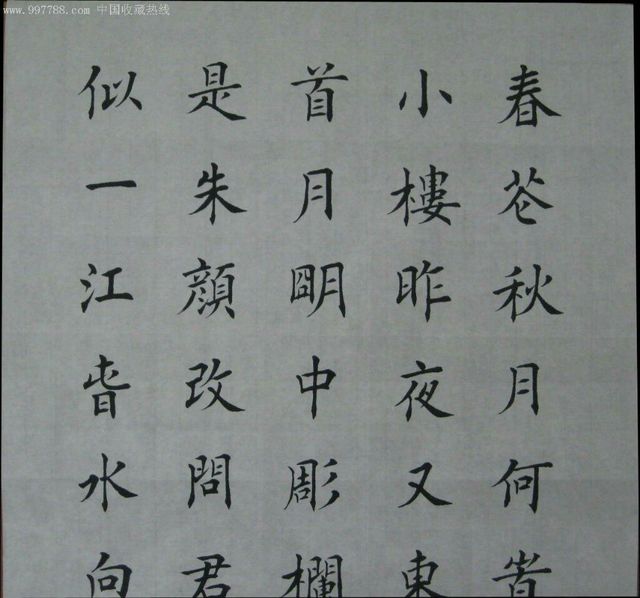 www.997788.com 中国收藏热线
春芲秋月何旹
小樓昨夜又東
首月朙中彫欄
是朱顔改問君
似一江旾水向